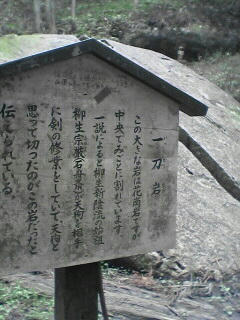 一刀岩
この大きな岩は花崗岩ですが
中央でみごとに割れています
一説によると柳生新陰流の始祖
柳生宗厳石舟斎が天狗を相手
に剣の修業をしていて天狗と
思って切ったのがこの岩だったと
伝えられている